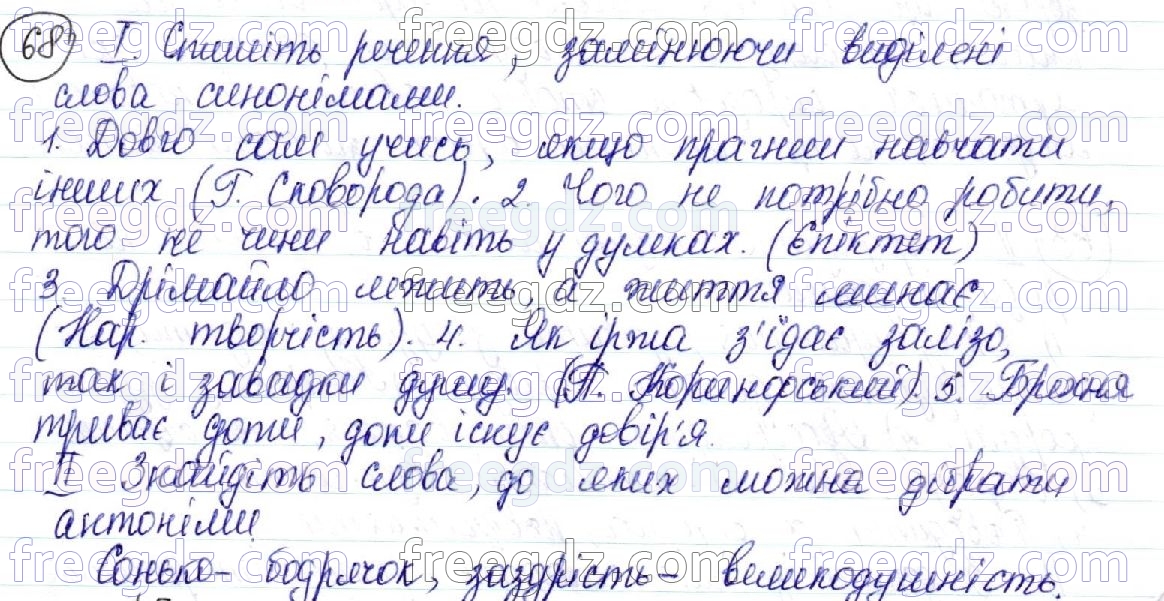 68 I. Спишіть речення, замінюючи виділені
слова синонімами.
1. Довго сам учись, якщо прагнеш навчати
інших (Г. Сковорода). 2. Чого не потрібно робити,
того не чини навіть у думках. (Епіктет)
3. Дрімайло лежить, а життя минає
(Нар. творчість). 4. Як іржа з'їдає залізо,
так і завидки душу. (П. Коринфський). 5. Брехня
триває доти, доки існує довір'я.
II Знайдіть слова, до яких можна дібрати
антоніми.
Сонько - бодрячок, заздрість - великодушність.
freegdz.com